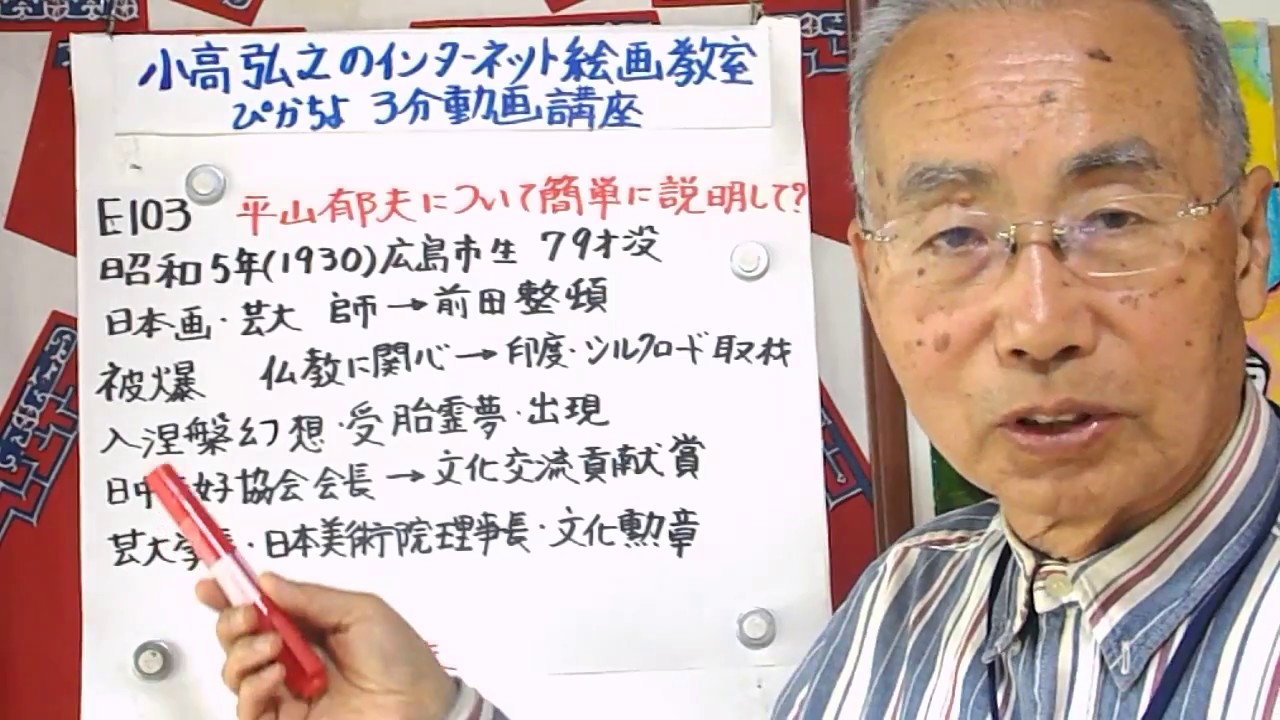 小高弘之のインターネット絵画教室
ぴかちよ 3分動画講座
E103 平山郁夫について簡単に説明して?
昭和5年(1930)広島市生 79才没
日本画・芸大 師→前田整頓
被爆 仏教に関心→印度・シルクロード取材
入涅槃幻想・受胎霊夢・出現
日中 好協会会長→文化交流貢献賞
芸大学長・日本美術院理事長・文化勲章